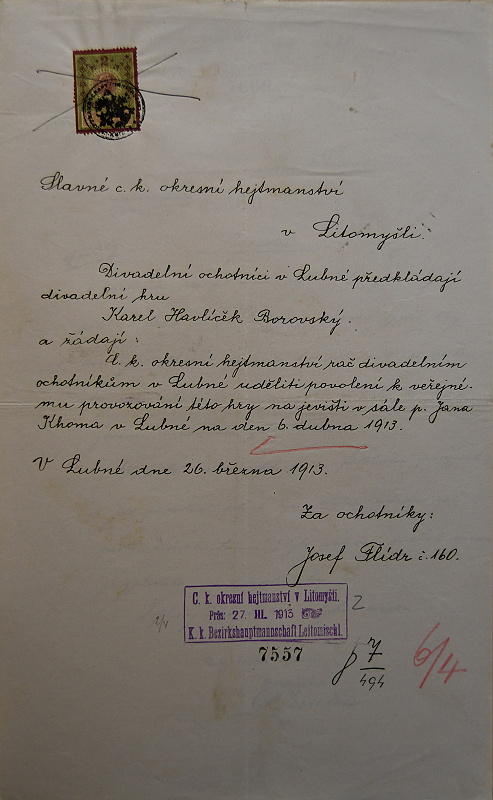 Slavné c. k. okresní hejtmanství
v Litomyšli.
Divadelní ochotníci v Lubné předkládají
divadelní hru
Karel Havlíček Borovský.
a žádají:
C. k. okresní hejtmanství rač divadelním
ochotníkům v Lubné uděliti povolení k veřejné-
mu provozování této hry na jevišti v sále p. Jana
Khoma v Lubné na den 6. dubna 1913.
V Lubné dne 26. března 1913.
Za ochotníky:
Josef Flídr č. 160.
C. k. okresní hejtmanství v Litomyšli.
Präs: 27. III. 1913
K. k. Bezirkshauptmannschaft Leitomischl.
2
2/4
7557
7
494
6/4